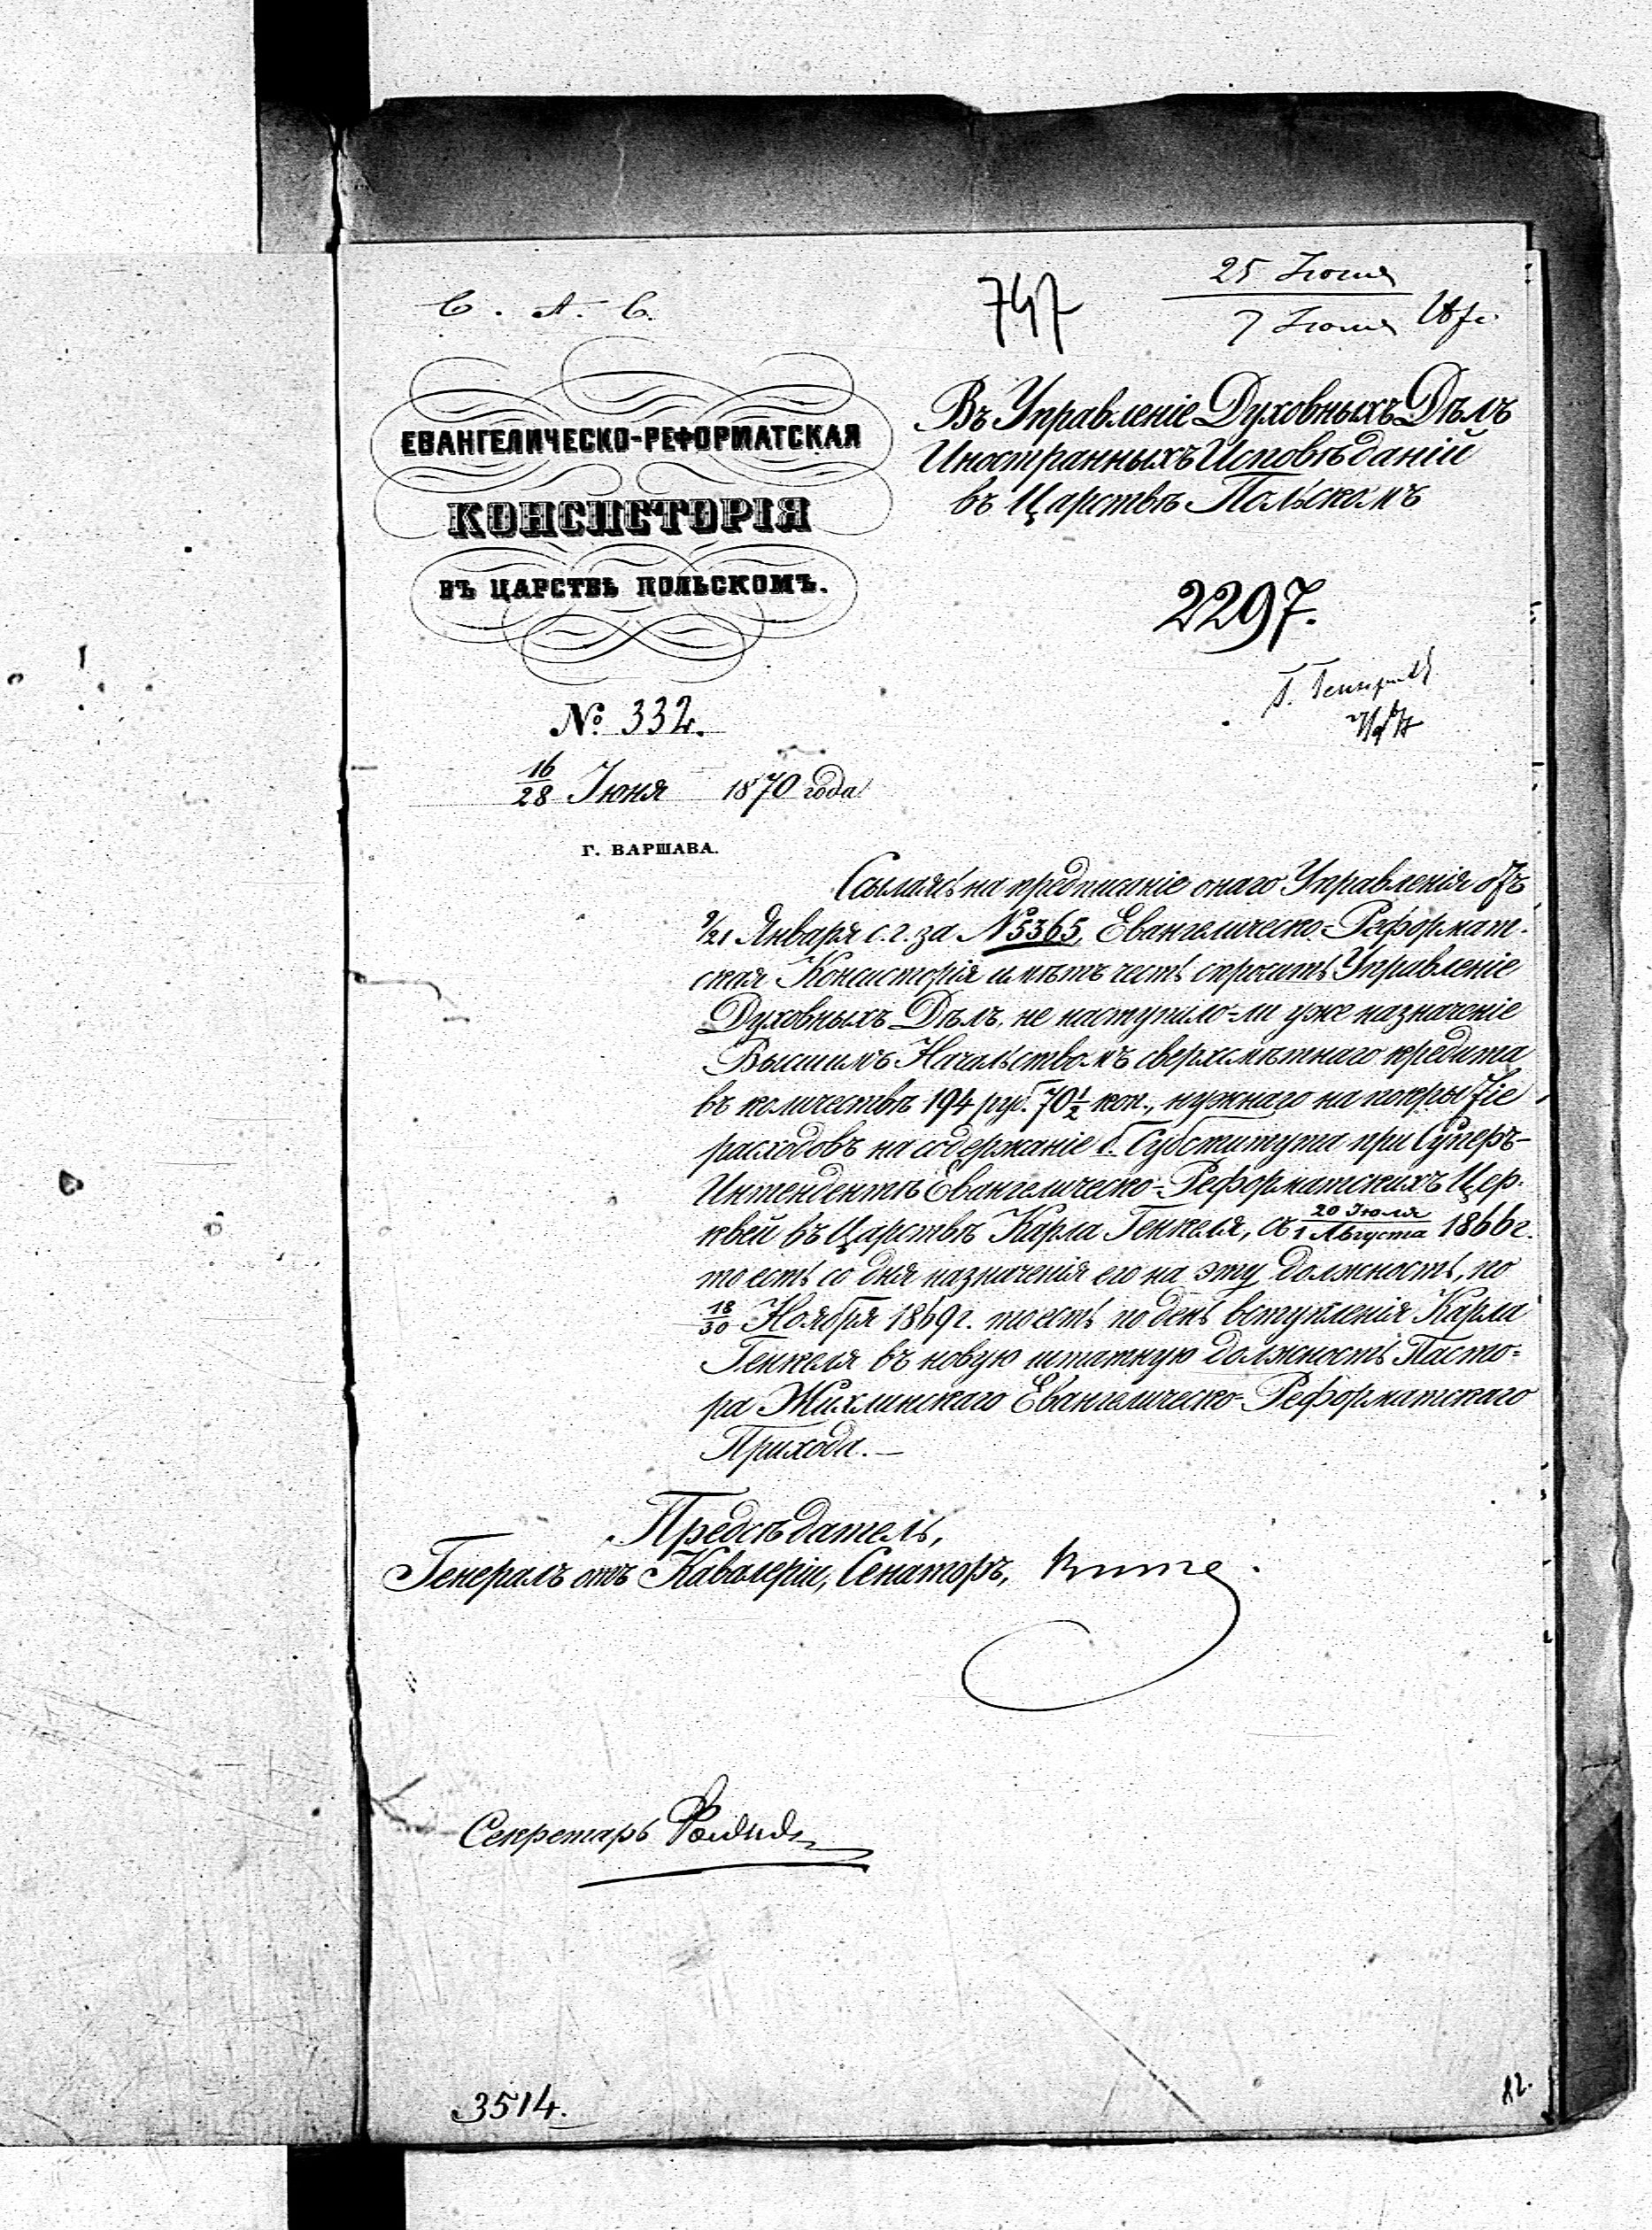 С. А. С.
747
25 Іюня
7 Іюля 1870
ЕВАНГЕЛИЧЕСКО-РЕФОРМАТСКАЯ
КОНСИСТОРІЯ
ВЪ ЦАРСТВѢ ПОЛЬСКОМЪ.
№ 332.
16/28 Іюня 1870 года
Г. ВАРШАВА.
Въ Управленіе Духовныхъ Дѣлъ
Иностранныхъ Исповѣданій
въ Царствѣ Польскомъ
2297.
Ссылаясь на предписаніе онаго Управленія отъ
9/21 Января с. г. за № 5365, Евангелическо-Реформат-
ская Консисторія имѣетъ честь спросить Управленіе
Духовныхъ Дѣлъ, не наступило-ли уже назначеніе
Высшимъ Начальствомъ сверхсмѣтнаго кредита
въ количествѣ 194 руб. 70 1/2 коп., нужнаго на покрытіе
расходовъ на содержаніе б. Субститута при Суперъ-
Интендентѣ Евангелическо-Реформатскихъ Цер-
квей въ Царствѣ Карла Генкеля, съ 20 Іюля/1 Августа 1866 г.
то есть со дня назначенія его на эту должность, по
18/30 Ноября 1869 г. то есть по день вступленія Карла
Генкеля въ новую штатную должность Пасто-
ра Жихлинскаго Евангелическо-Реформатскаго
Прихода. —
Предсѣдатель,
Генералъ отъ Кавалеріи, Сенаторъ, Витте.
Секретарь
3514.
12.